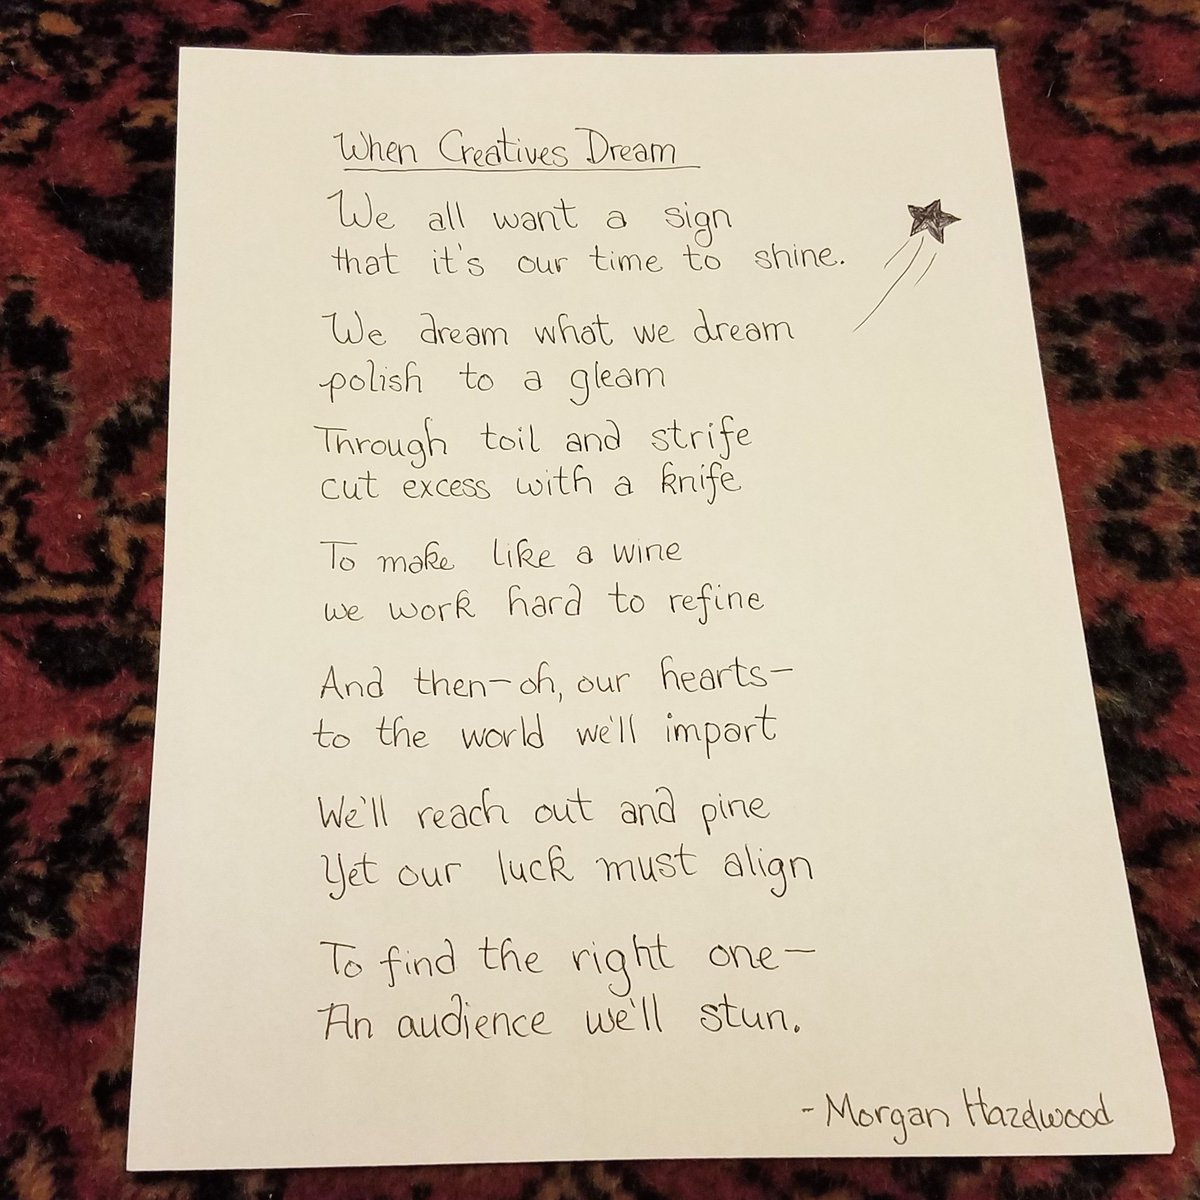 When Creatives Dream
We all want a sign
that it's our time to shine.
We dream what we dream
polish to a gleam
Through toil and strife
cut excess with a knife
To make like a wine
we work hard to refine
And then—oh, our hearts—
to the world we'll impart
We'll reach out and pine
Yet our luck must align
To find the right one—
An audience we'll stun.
- Morgan Hazelwood